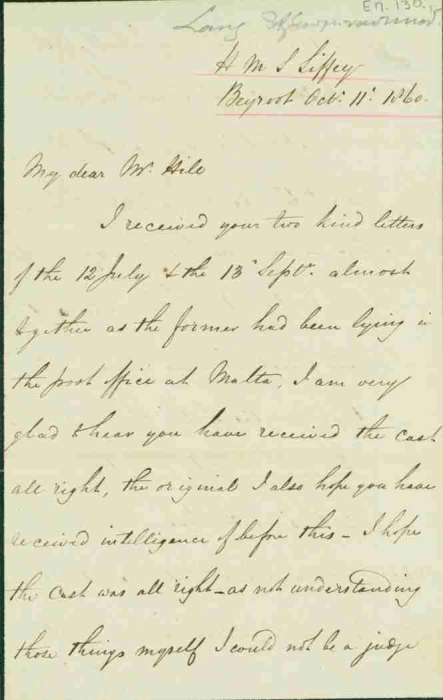 En. 130.
Lang
H M S Liffey
Beyroot Octr. 11t. 1860.
My dear Mr. Hile
I received your two kind letters
of the 12 July & the 13t Septr. almost
together as the former had been lying in
the post office at Malta, I am very
glad to hear you have received the cast
all right, the original I also hope you have
received intelligence of before this - I hope
the cast was all right - as not understanding
those things myself I could not be a judge